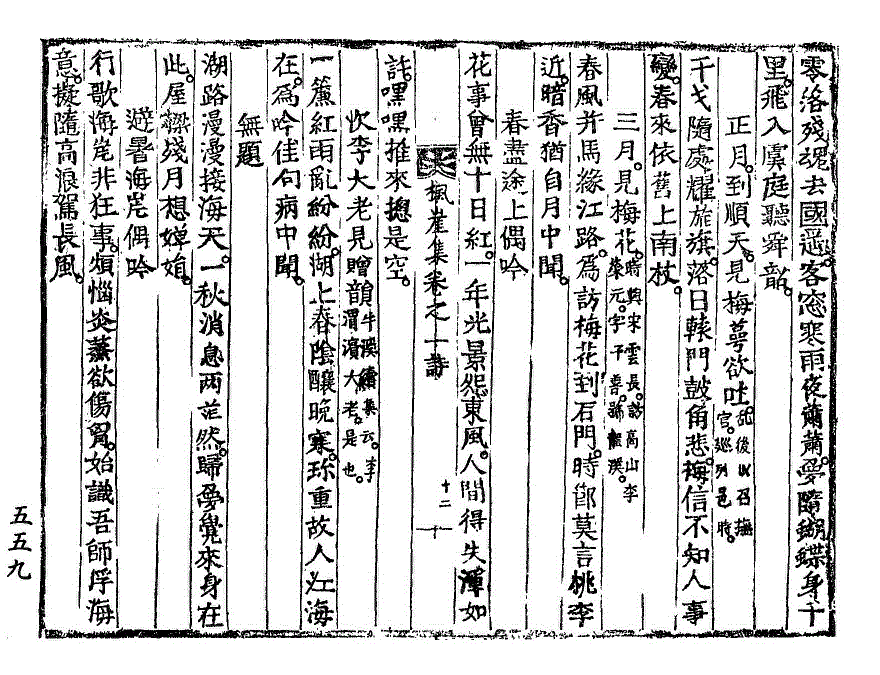 零落殘魂去國遥客窓寒雨夜蕭蕭夢隨蝴蝶身千
里飛入虞庭聽舜韶
正月到順天見梅萼欲吐亂後以召撫官巡列邑時
干戈隨處耀旌旗落日轅門鼓角悲梅信不知人事
變春來依舊上南枝
三月見梅花時與宋雲長訪高山李榮元字子善號龍溪
春風并馬緣江路爲訪梅花到石門時節莫言桃李
近暗香猶自月中聞
春盡途上偶吟
花事曾無十日紅一年光景怨東風人間得失渾如
楓崖集卷之一詩 十二
許嘿嘿推來摠是空
次李大老見贈韻牛溪續集云李渭濱大老是也
一簾紅雨亂紛紛湖上春陰釀晩寒珎重故人江海
在爲吟佳句病中聞
無題
湖路漫漫接海天一秋消息两茫然歸夢覺來身在
此屋樑殘月想嬋娟
遊暑海岸偶吟
行歌海岸非狂事煩惱炎蒸欲傷胷始識吾師浮海
意擬隨高浪駕長風
五五九